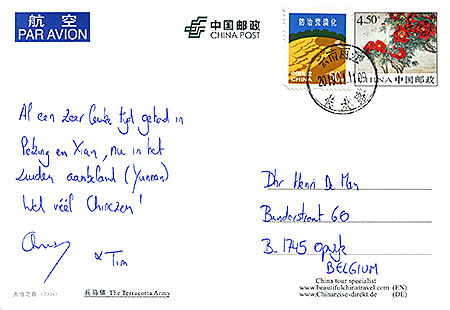 航空
PAR AVION
中国邮政
CHINA POST
防治荒漠化
中国邮政
CHINA
4.50元
CHINA中国邮政
云南丽江
Al een zeer leuke tijd gehad in
Peking en Xian, nu in het
zuiden aanbeland (Yunnan)
Wel véél Chinezen!
& Tim
Dhr Henri De Man
Bunderstraat 60
B-1745 Opwijk
BELGIUM
China tour specialist
www.beautifulchinatravel.com (EN)
www.Chinareise-direkt.de (DE)
兵马俑 The Terracotta Army